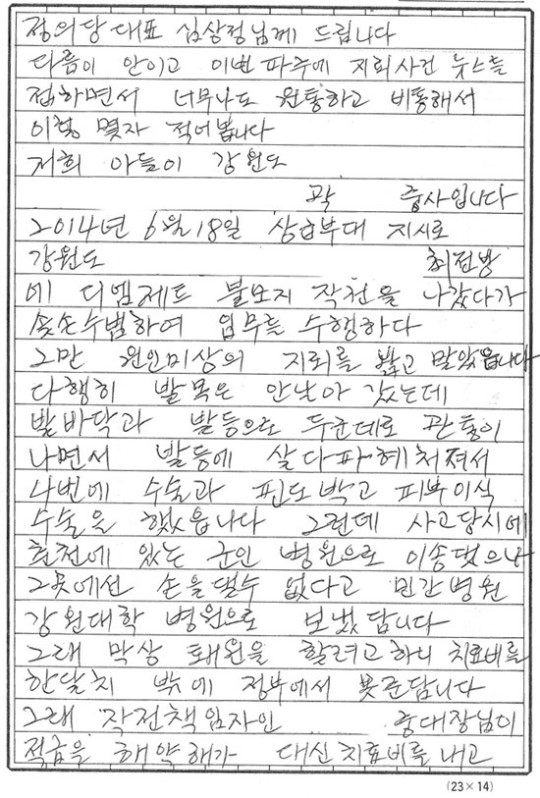 정의당 대표 심상정님께 드립니다
다름이 안이고 이번 파주에 지뢰사건 뉴스를
접하면서 너무나도 원통하고 비통해서
이렇 몇자 적어봅니다
저희 아들이 강원도
곽 중사입니다
2014년 6월18일 상급부대 지시로
강원도 최전방
에 디엠제트 불모지 작전을 나갔다가
솔손수범하여 업무를 수행하다
그만 원인미상의 지뢰를 밟고 말았읍니다
다행히 발목은 안날아 갔는데
발바닥과 발등으로 두군데로 관통이
나면서 발등에 살 다파헤처져서
4번에 수술과 핀도박고 피부이식
수술을 했읍니다 그런데 사고당시에
춘천에 있는 군인 병원으로 이송됫으나
그곳에선 손을댈수 없다고 민간병원
강원대학 병원으로 보냈답니다
그래 막상 퇴원을 할려고하니 치료비를
한달치 밖에 정부에서 못준답니다
그래 작전책임자인 중대장님이
적금을 해약해가 대신치료비를 내고
(23×14)